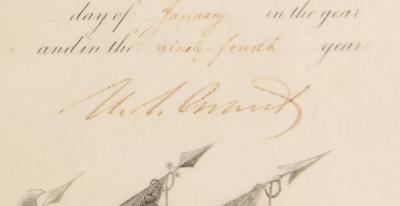 day of January in the year
and in the ninety-fourth year
U. S. Grant